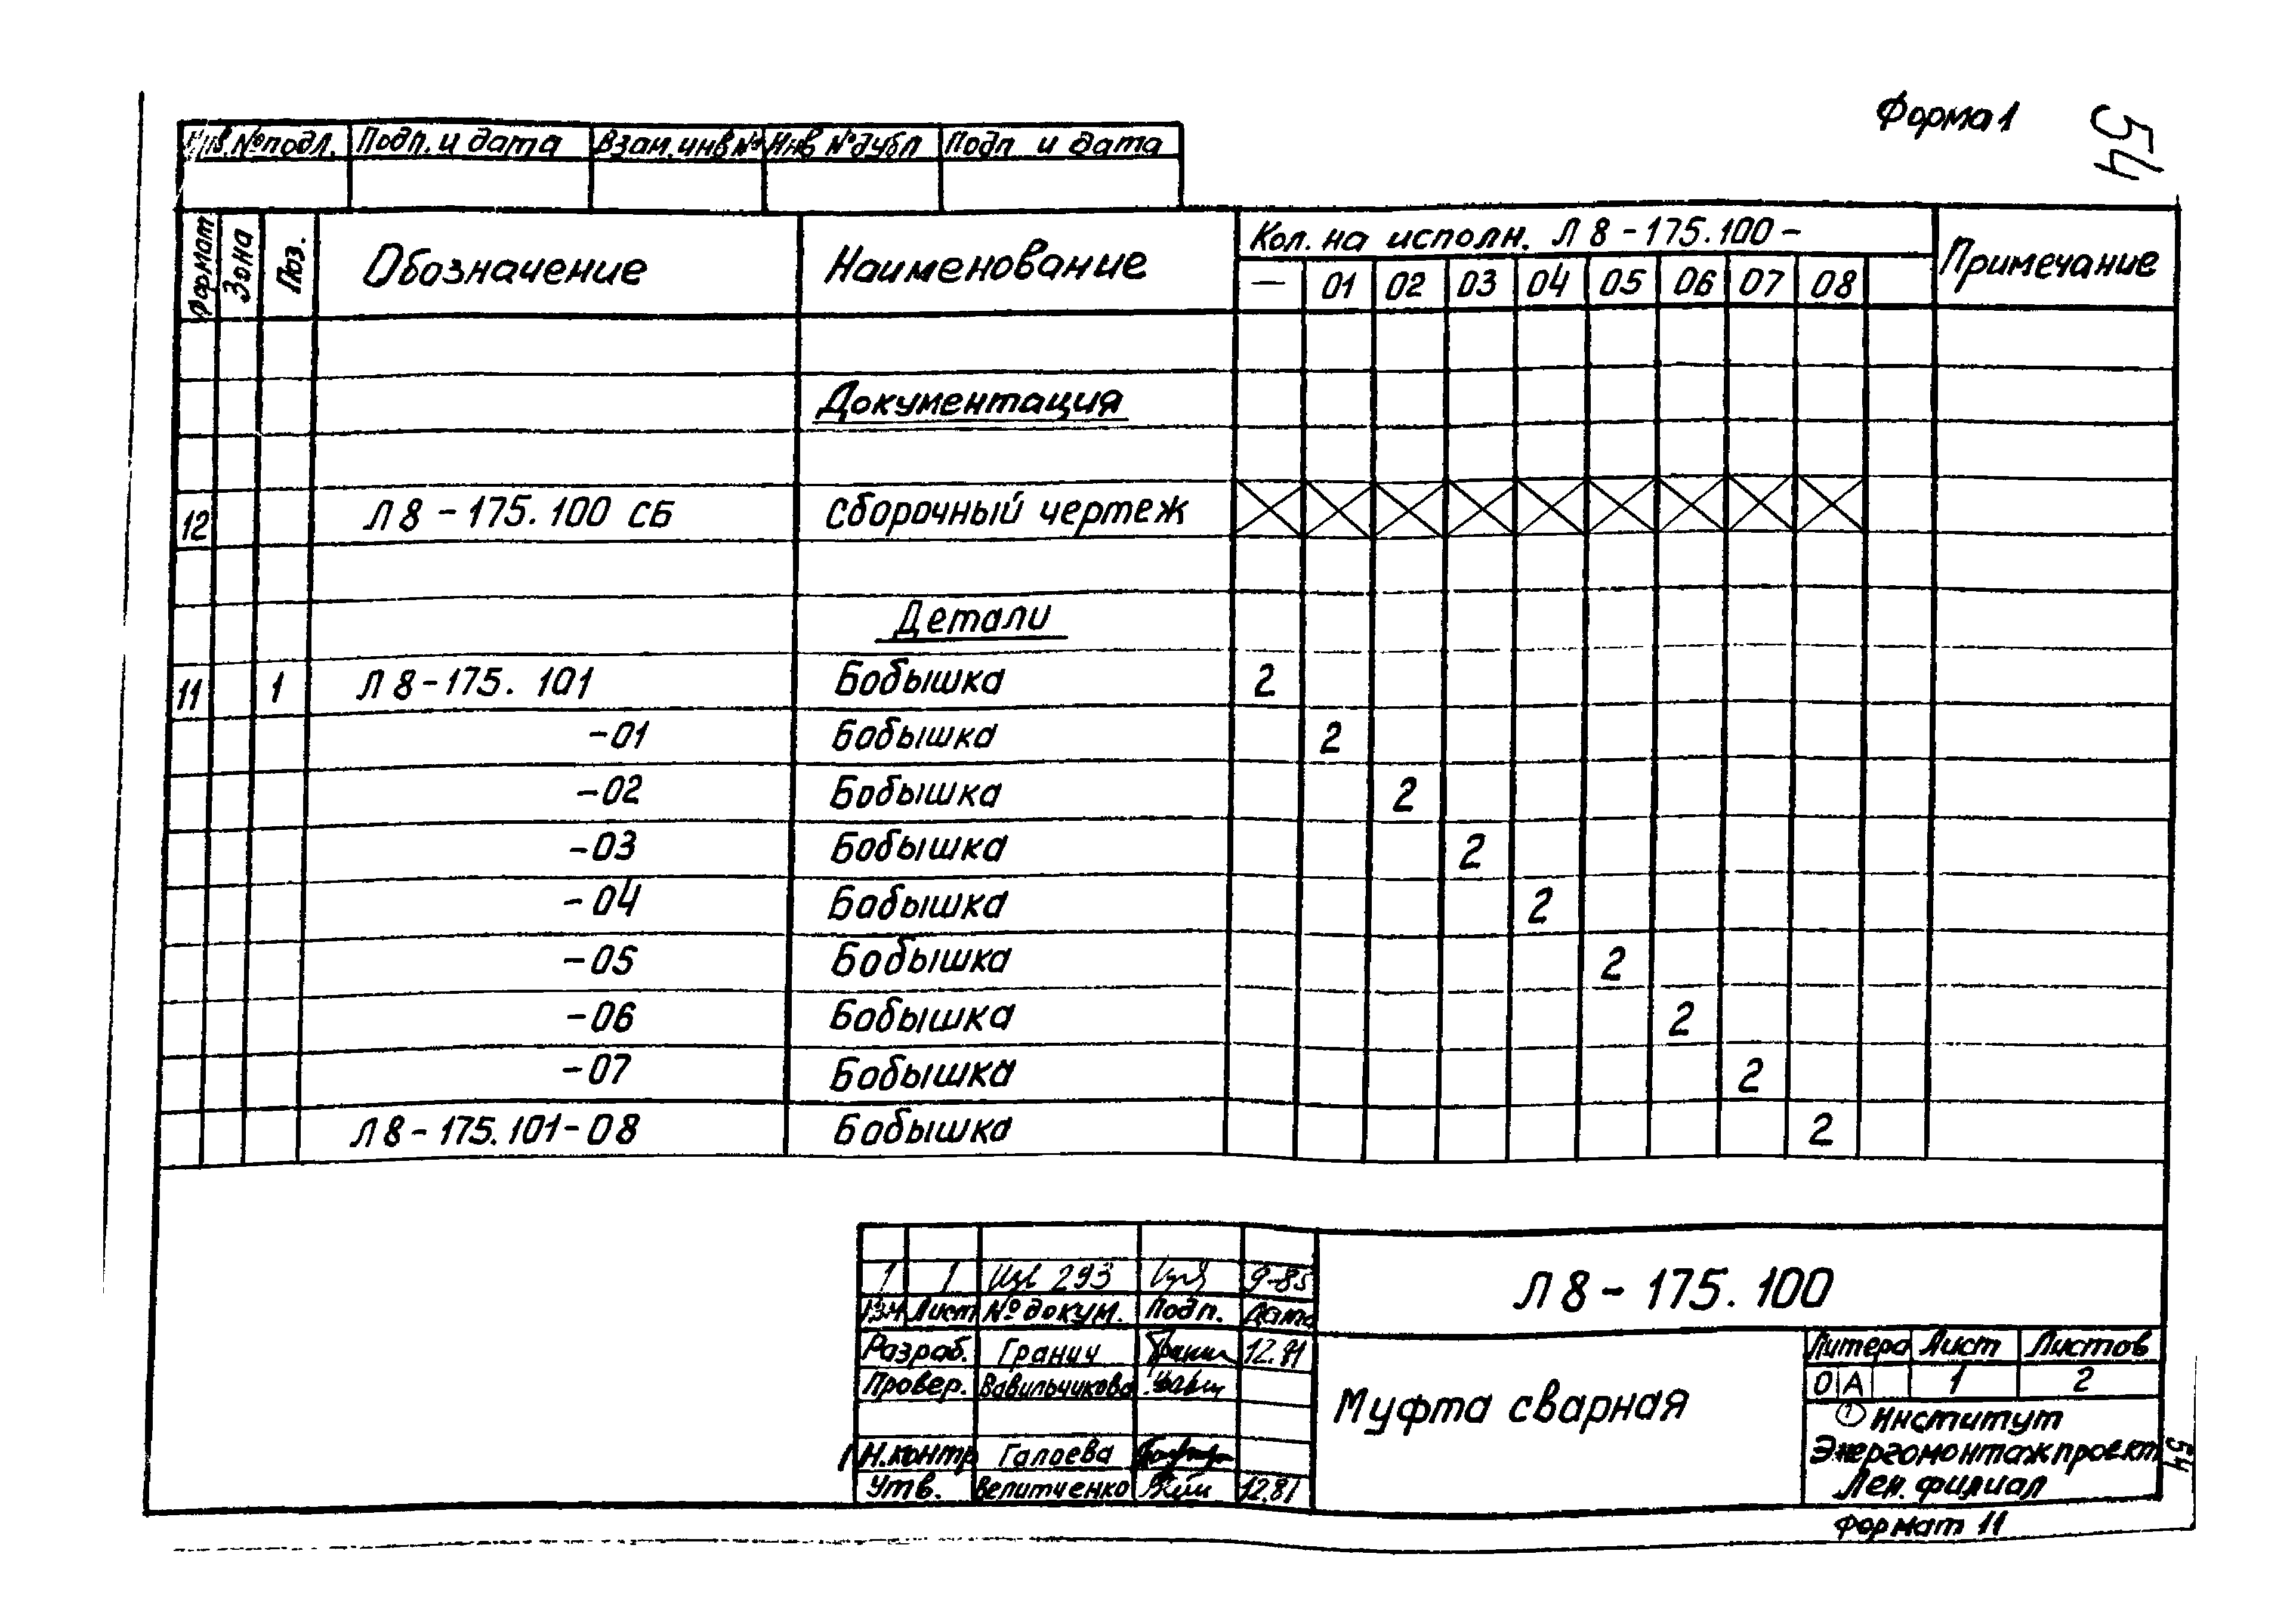 Форма 1
54
Инв.№подл. Подп. и дата Взам.инв№ Инв №дубл Подп и дата
Формат Зона Поз. Обозначение Наименование Кол. на исполн. Л 8 - 175.100 - Примечание
— 01 02 03 04 05 06 07 08
Документация
12 Л 8 - 175. 100 СБ Сборочный чертеж
Детали
11 1 Л 8 - 175. 101 Бобышка 2
-01 Бобышка 2
-02 Бобышка 2
-03 Бобышка 2
-04 Бобышка 2
-05 Бобышка 2
-06 Бобышка 2
-07 Бобышка 2
Л 8 - 175. 101 - 08 Бобышка 2
1 1 Изв 293 9-85
Изм Лист № докум. Подп. Дата
Разраб. Гранич 12.81
Провер. Вавильчикова
Н.контр Галоева
Утв. Велитченко 12.81
Л 8 - 175. 100
Муфта сварная
Литера Лист Листов
О А 1 2
1 Институт
Энергомонтажпроект
Лен. филиал
54
Формат 11